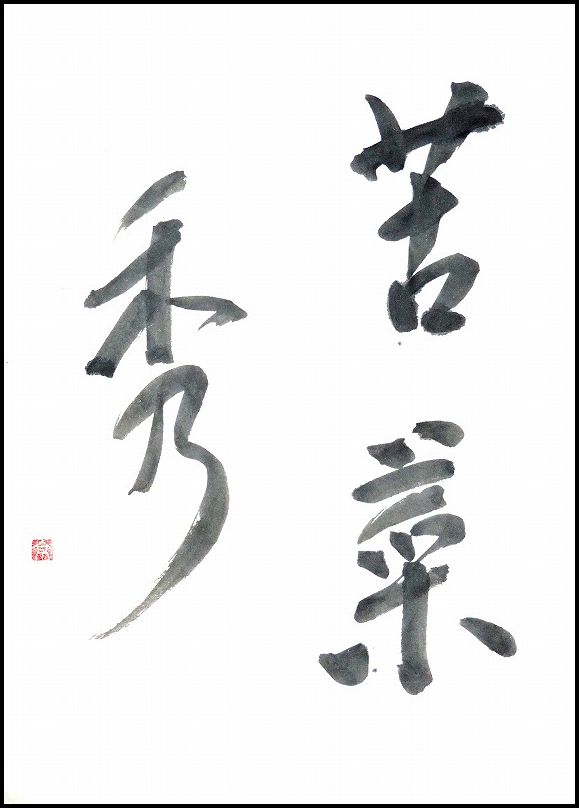 苦菜
秀